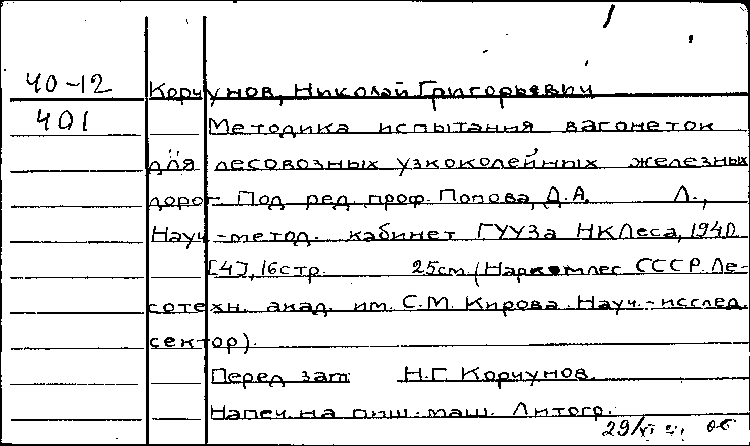 40-12
Корчунов, Николай Григорьевич
401
Методика испытания вагонеток
для лесовозных узкоколейных железных
дорог. Под ред. проф. Попова, Д.А. Л.,
Науч.-метод. кабинет ГУУЗа НКЛеса, 1940.
[4], 16 стр. 25см. (Наркомлес СССР. Ле-
сотехн. акад. им. С.М. Кирова. Науч.-исслед.
сектор).
Перед заг. Н.Г. Корчунов.
Напеч. на пиш. маш. Литогр.
29/XI